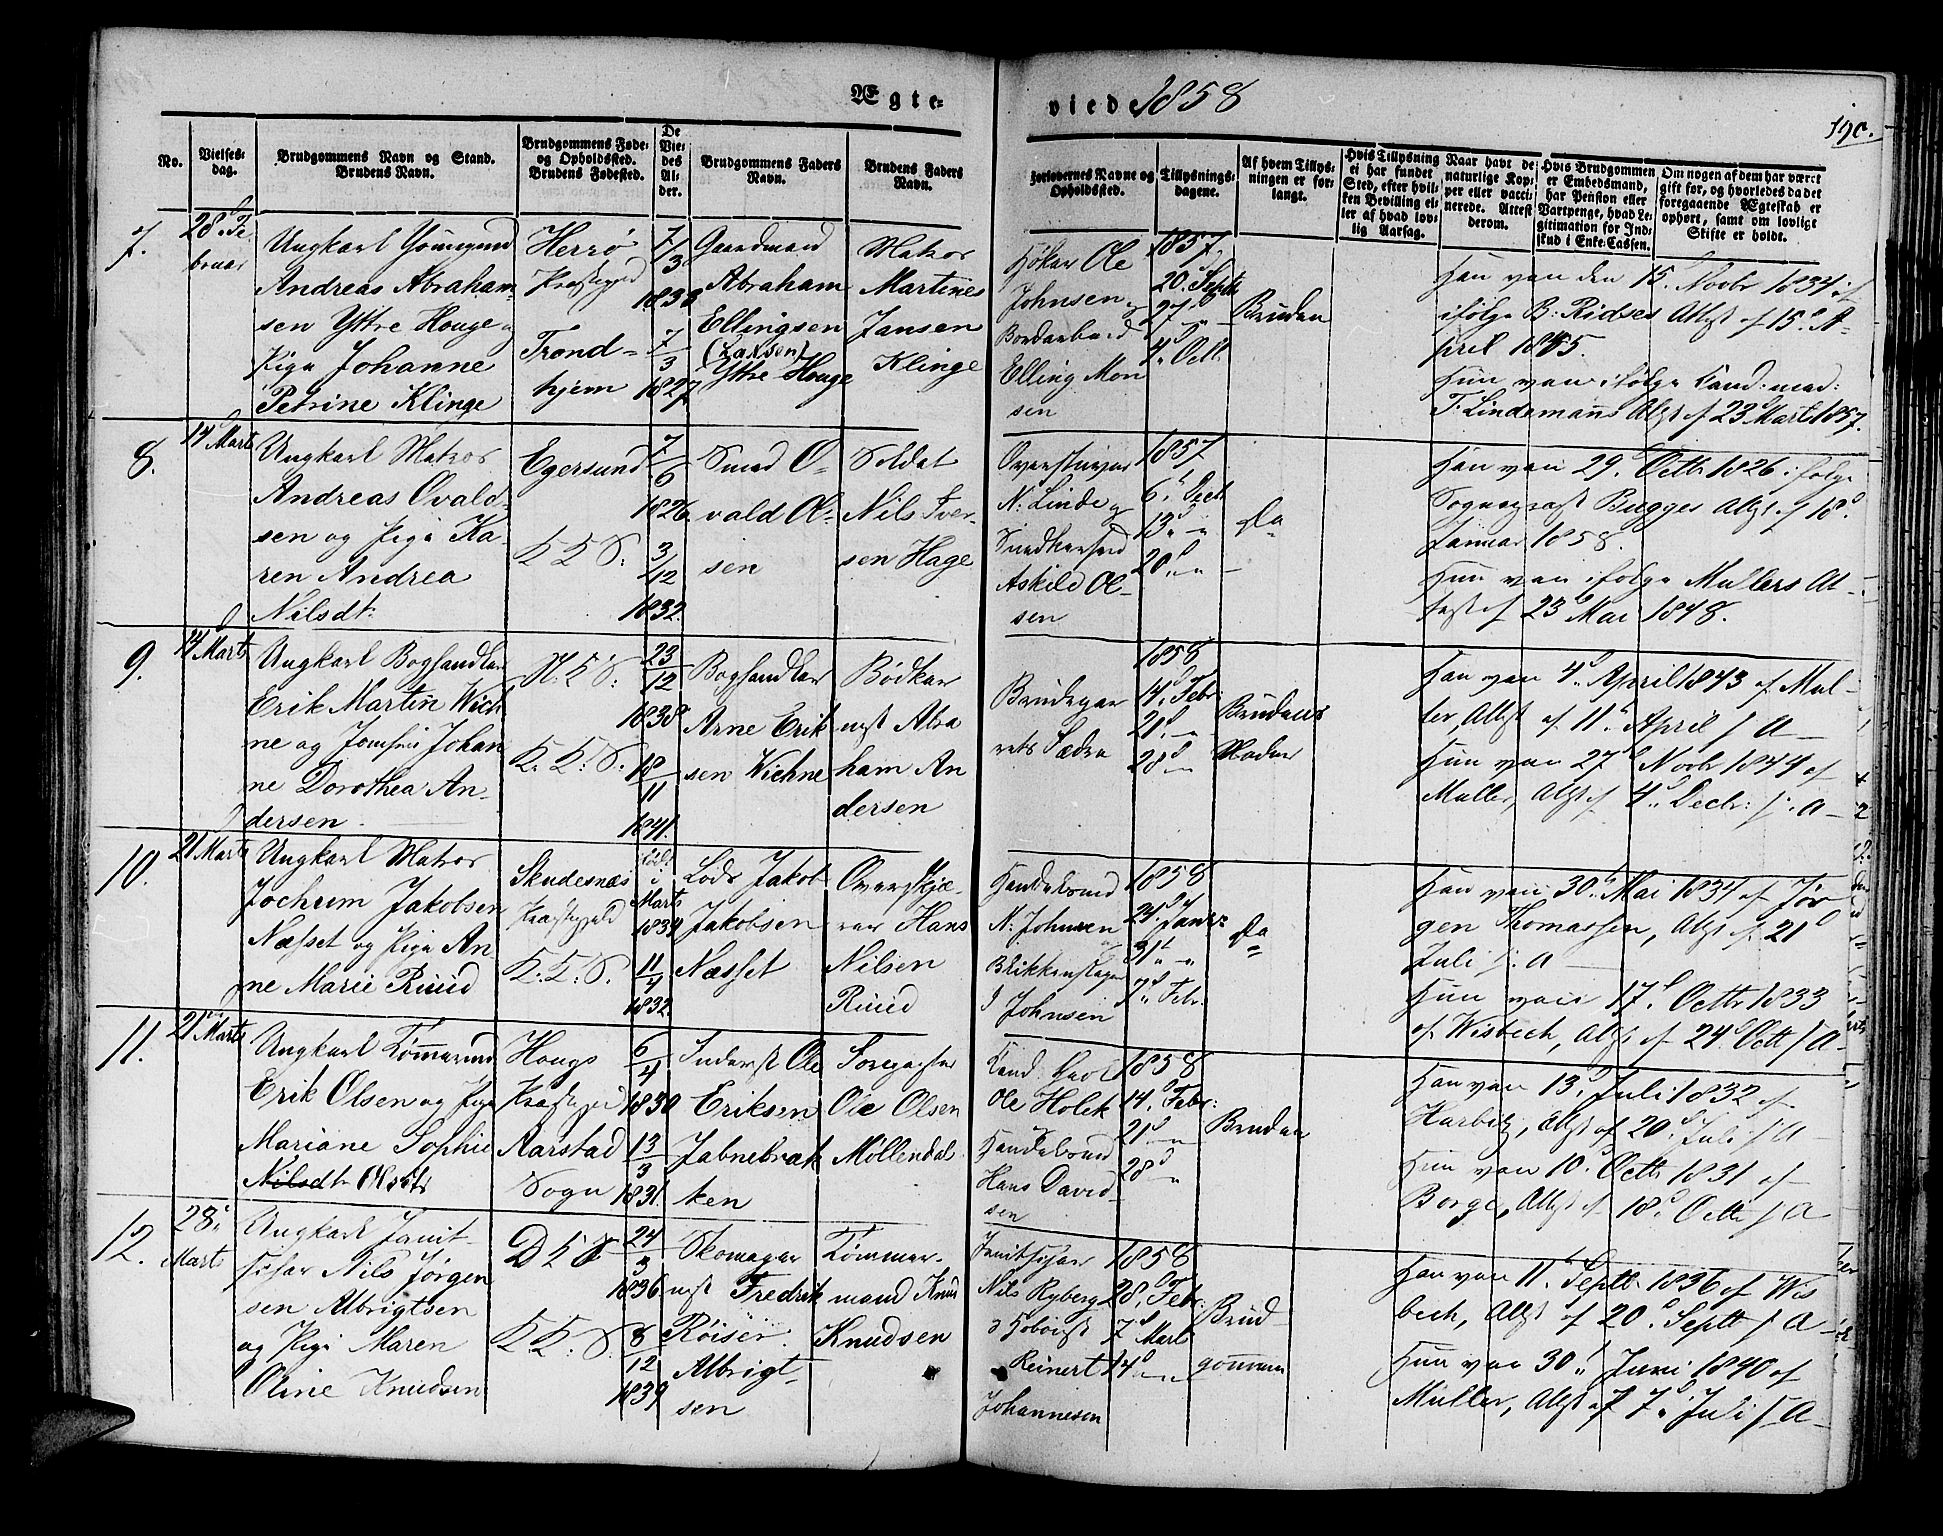 Ægte-
viede 1858
190.
No.
Vielses-
dag.
Brudgommens Navn og Stand.
Brudens Navn.
Brudgommens Føde-
og Opholdssted.
Brudens Fødested.
De
Vie-
des
Al-
der.
Brudgommens Faders
Navn.
Brudens Faders
Navn.
Forlovernes Navne og
Opholdssted.
Tillysnings-
dagene.
Af hvem Tillys-
ningen er for-
langt.
Hvis Tillysning
ei har fundet
Sted, efter hvil-
ken Bevilling el-
ler af hvad lov-
lig Aarsag.
Naar havt de
naturlige Kop-
per eller vacci-
nerede. Attest
derom.
Hvis Brudgommen
er Embedsmand,
har Pension eller
Vartpenge, hvad Le-
gitimation for Ind-
skud i Enke-Cassen.
Om nogen af dem har været
gift før, og hvorledes da det
foregaaende Ægteskab er
ophørt, samt om lovlige
Skifte er holdt.
7.
28d Fe-
bruar
Ungkarl
Andreas Abraham-
sen Yttre Houge og
Pige Johanne
Petrine Klinge
Herrø
Præstegjeld
Trond-
hjem
7/3
1833
7/3
1827
Gaardmand
Abraham
Ellingsen
(Larsen)
Yttre Houge
Matros
Martines
Jansen
Klinge
Høker Ole
Johnsen og
Elling Mon
sen
1857
20. Septbr
27d "
4d Octb.
Bruden
Han vac. den 15d Novbr 1834 af
ifølge B. Ridses Attest af 15d A-
pril 1845.
Hun vac. ifølge Cand. med:
T. Lindemanns Attest af 23d Marts 1857.
8.
14 Marts
Ungkarl Matros
Andreas Ovald-
sen og Pige Ka-
ren Andrea
Nilsdt.
Egersund
K. K. S.
7/6
1826
3/12
1832.
Smed O-
vald Ol-
sen
Soldat
Nils Iver-
sen Hage
Overstyrmd
N. Linde og
Snedkersvd
Askild Ol-
sen
1857
6te Decb
13d "
20d "
Do
Han vac. 29d Octbr 1826 ifølge
Sognepræst Bugges Attest af 18d
Januar 1858.
Hun vac. ifølge Mullers At-
test af 23d Mai 1848.
9.
14d Marts
Ungkarl Boghandler
Erik Martin Wich
ne og Jomfru Johan
ne Dorothea An-
dersen
N. K. S.
K. K. S.
23/12
1838
18/11
1841.
Boghandler
Arne Erik
sen Wichne
Bødker
mst Abra
ham An
dersen
Brudepar
rets Fædre
1858
14d Febr.
21d "
28d "
Brudens
Moder
Han vac. 4d April 1843 af Mul-
ler, Attest af 11te April s. A
Hun vac. 27d Novbr 1844 af
Muller, Attst af 4d Decbr: s. A
10.
21 Marts
Ungkarl Matros
Jochum Jakobsen
Næsset og Pige An
ne Marie Ruud
Skudesnæs
Præstegjeld
K. K. S.
Marts
1834
11/4
1832.
Lods Jakob
Jakobsen
Næsset
Overskjæ-
rer Hans
Nilsen
Ruud
Handelsmd
N. Johnsen
Blikkenslager
J Johnsen
1858
24d Janr:
31te "
7d Febr.
Do
Han vac. 30d Mai 1834 af Jør
gen Thomassen, Attst af 21d
Juli s. A
Hun vac. 17d Octbr 1833
af Wisbech, Attst af 24d Octb s. A
11.
21d Marts
Ungkarl Tømmermd
Erik Olsen og Pige
Mariane Sophie
Nilsdt Olsdtr
Hougs
Præstegjeld
Aarstad
Sogn
6/4
1830
13/3
1831.
Inderst Ole
Eriksen
Jabnebrak
ken
Ole Olsen
Møllendal
Cand.
Ole Holck
Handelsmd
Hans David
sen
1858
14d Febr:
21d "
28d "
Bruden
Han vac. 13d Juli 1832 af
Harbitz, Attst af 20d Juli s. A
Hun vac. 10d Octbr 1831 af
Borge, Attst af 18d Octb s. A
12.
28d
Marts
Ungkarl Janit-
schar Nils Jørgen
sen Albrigtsen
og Pige Maren
Oline Knudsen
D K S
K. K. S.
24/3
1836
8/12
1839
Skomager
mst Fredrik
Røiser
Albrigt-
sen
Tømmer-
mand Knud
Knudsen
Janitschar
Nils Ryberg
Reinert
Johannesen
1858
28d Febr.
7d Marts
14d "
Brud-
gommen
Han vac. 11te Septb 1836 af Wis
bech, Attst af 20d Septb s. A
Hun vac. 30te Juni 1840 af
Muller, Attst af 7d Juli s. A